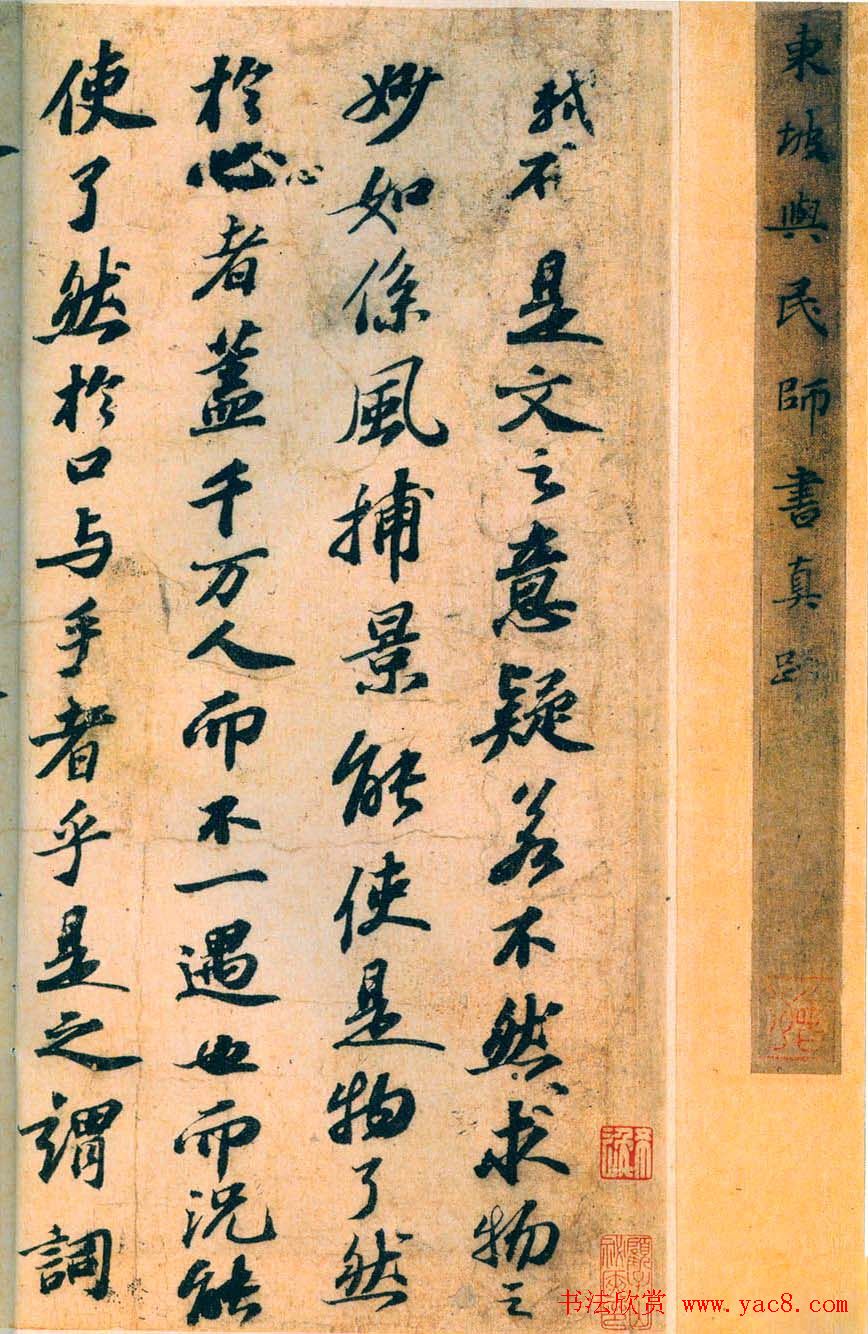 東坡與民師書真跡
軾不是文之意疑若不然求物之
妙如係風捕景能使是物了然
於心心者蓋千万人而不一遇也而況能
使了然於口与手者乎是之謂詞
书法欣赏 www.yac8.com